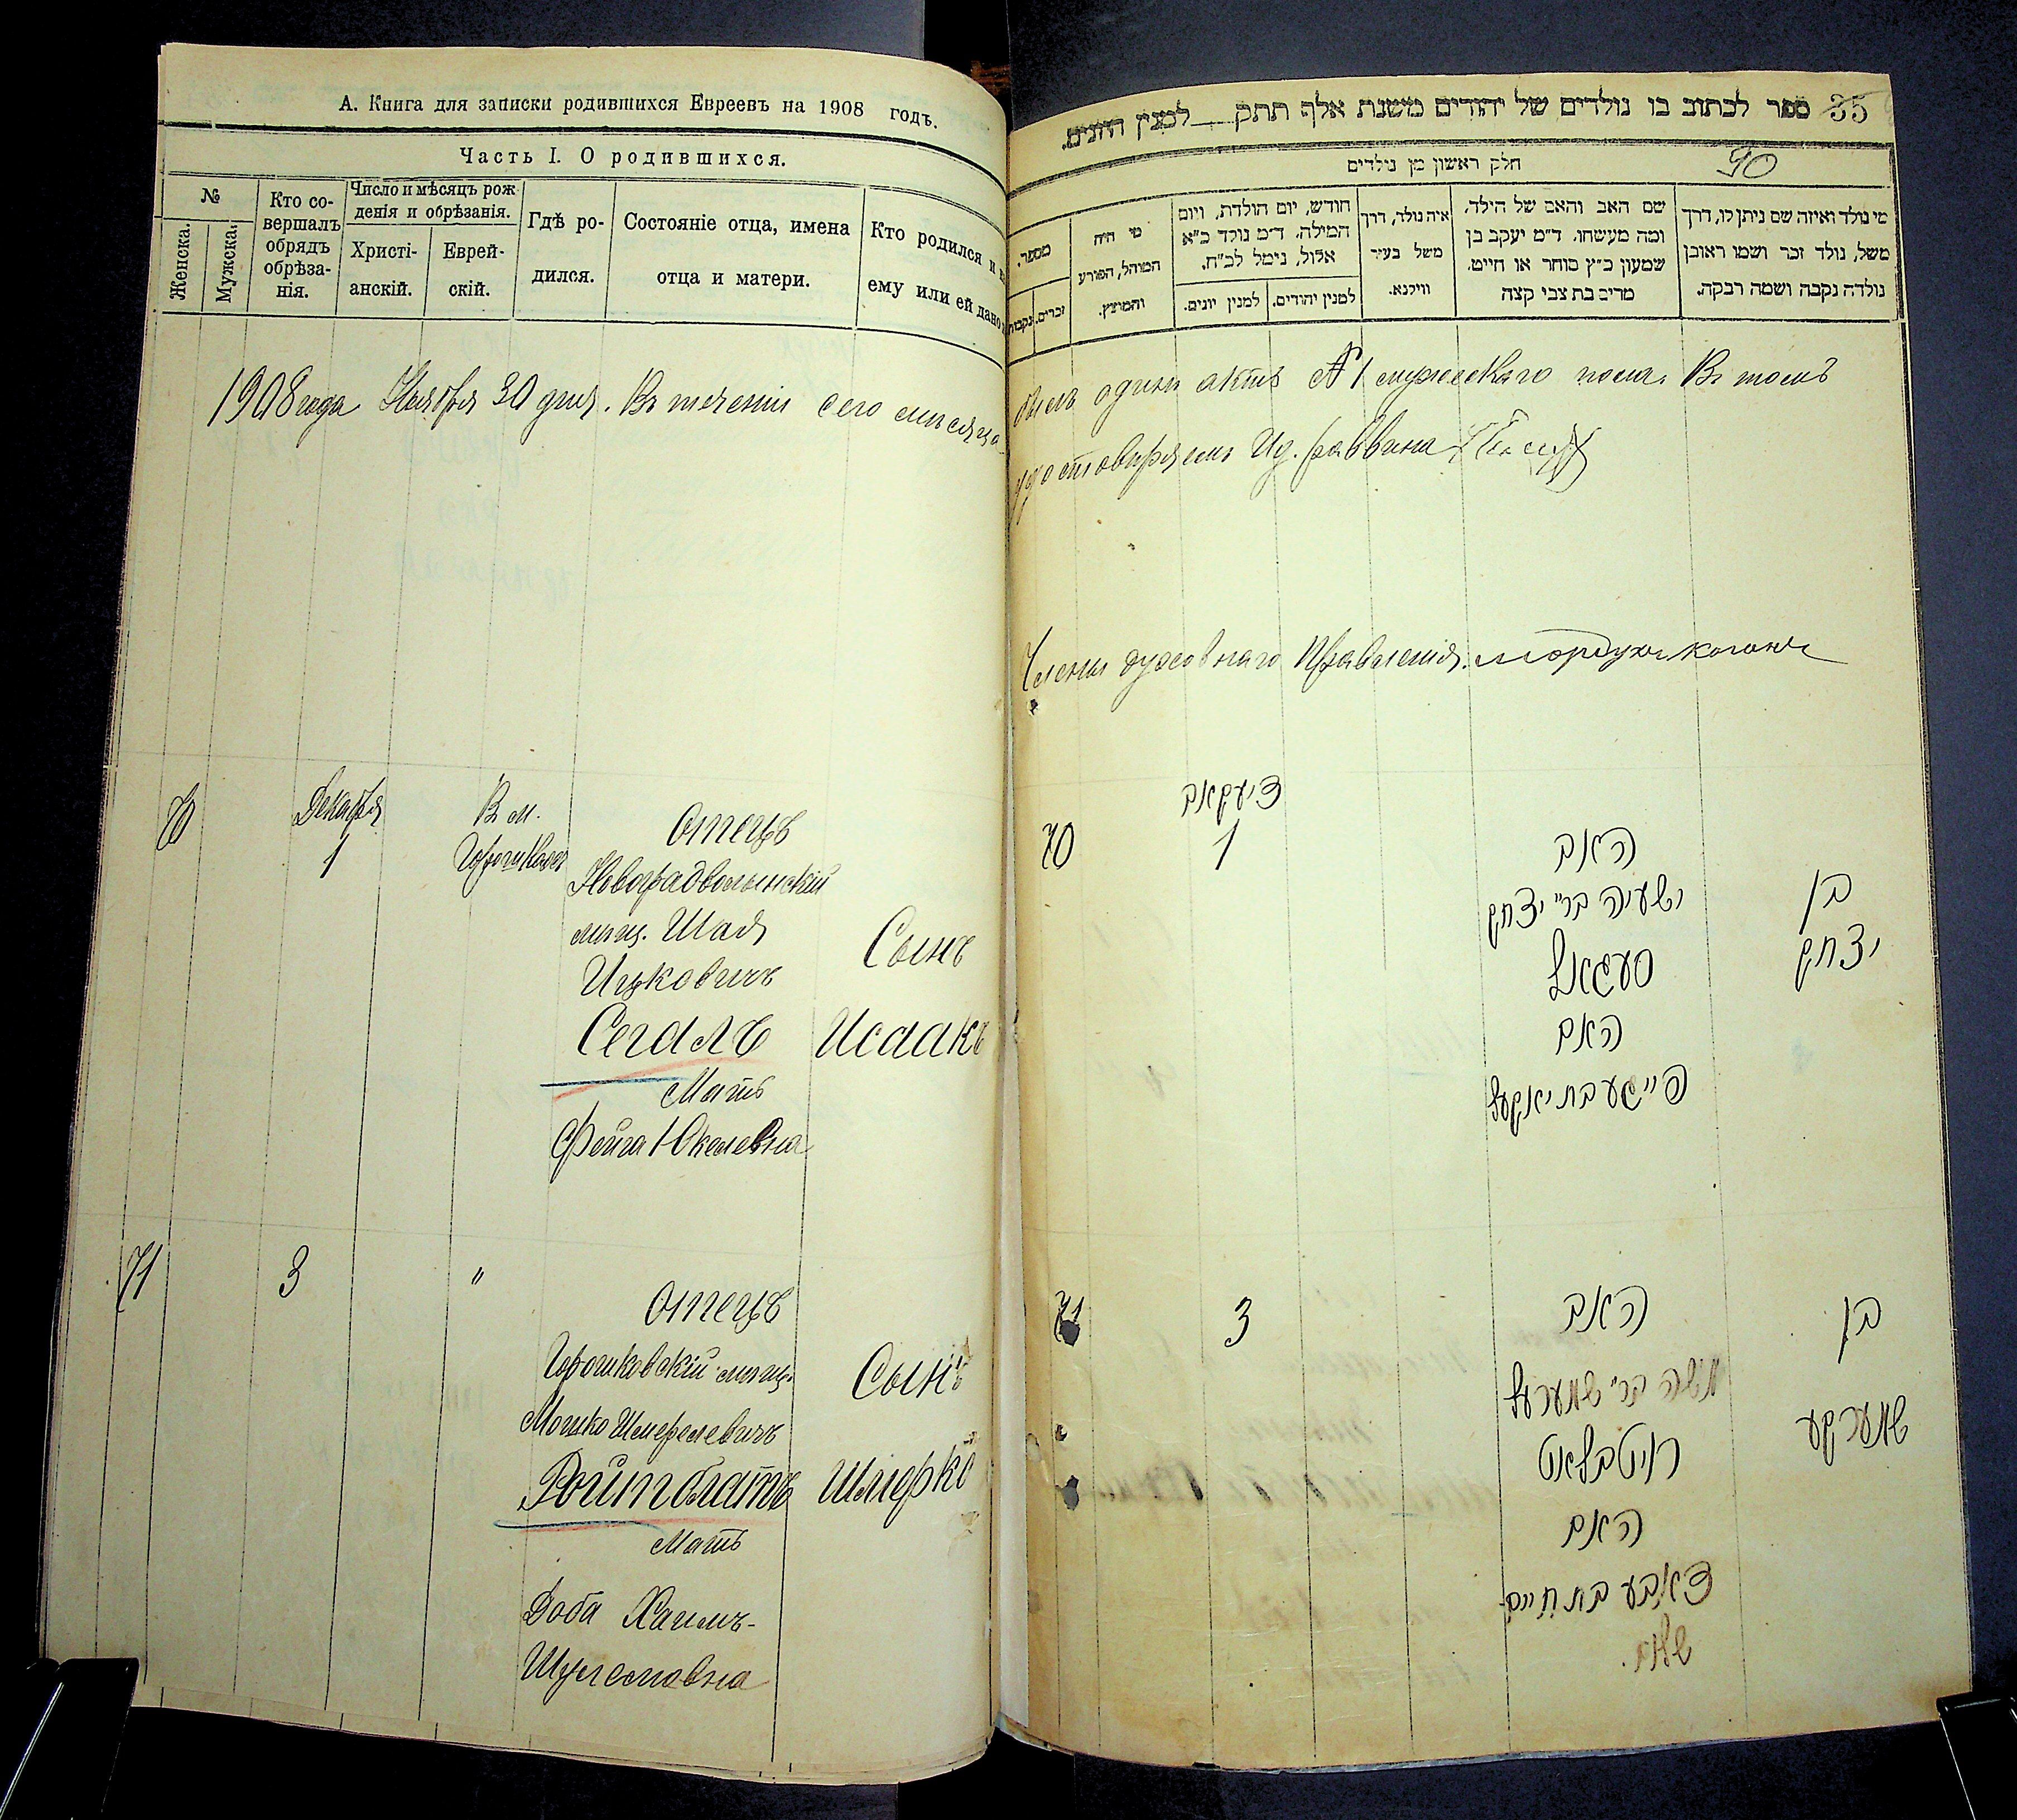 А. Книга для записки родившихся Евреевъ на 1908 годъ.
Часть I. О родившихся.
№
Женска.
Мужска.
Кто со-
вершалъ
обрядъ
обрѣза-
нія.
Число и мѣсяцъ рож
денія и обрѣзанія.
Христі-
анскій.
Еврей-
скій.
Гдѣ ро-
дился.
Состояніе отца, имена
отца и матери.
Кто родился и
ему или ей дано
1908 года Ноября 30 дня. Въ теченіи сего мѣсяца
70
Декабря
1
В м.
Горошкахъ
Отецъ
Новоградволынскій
мѣщ. Шая
Ицковичъ
Сегалъ
Мать
Фейга Юкелевна
Сынъ
Исаакъ
71
3
"
Отецъ
Горошковскій мѣщ.
Мошко Шмерелевичъ
Ройтблатъ
Мать
Доба Хаимъ-
Шулемовна
Сынъ
Шмерко
ספר לכתוב בו נולדים של יהודים משנת אלף תתק__למנין היונים.
35
90
חלק ראשון מן נולדים
מי נולד ואיזה שם ניתן לו, דרך
משל, נולד זכר ושמו ראובן
נולדה נקבה ושמה רבקה.
שם האב והאם של הילד,
ומה מעשהו. ד״מ יעקב בן
שמעון כ״ץ סוחר או חייט.
מרים בת צבי קצה
איה נולד, דרך
משל בעיר
ווילנא.
חודש, יום הולדת, ויום
המילה. ד״מ נולד כ״א
אלול, נימל לכ״ח.
למנין יהודים.
למנין יונים.
מי היה
המוהל, הפורע
והמוצץ.
מספר.
זכרים.
נקבות
былъ одинъ актъ № 1 мужескаго пола. Въ томъ
удостовѣряемъ Ид. раввина
Члены духовнаго Правленія. Мордухъ Коганъ
דיעקאב
70
1
האב
ישעיה בר״ יצחק
סעגאל
האם
פייגע בת יאקעל
בן
יצחק
71
3
האב
משה בר״ שמערעל
רויטבלאט
האם
דאבע בת חיים
שלום.
בן
שמערקע